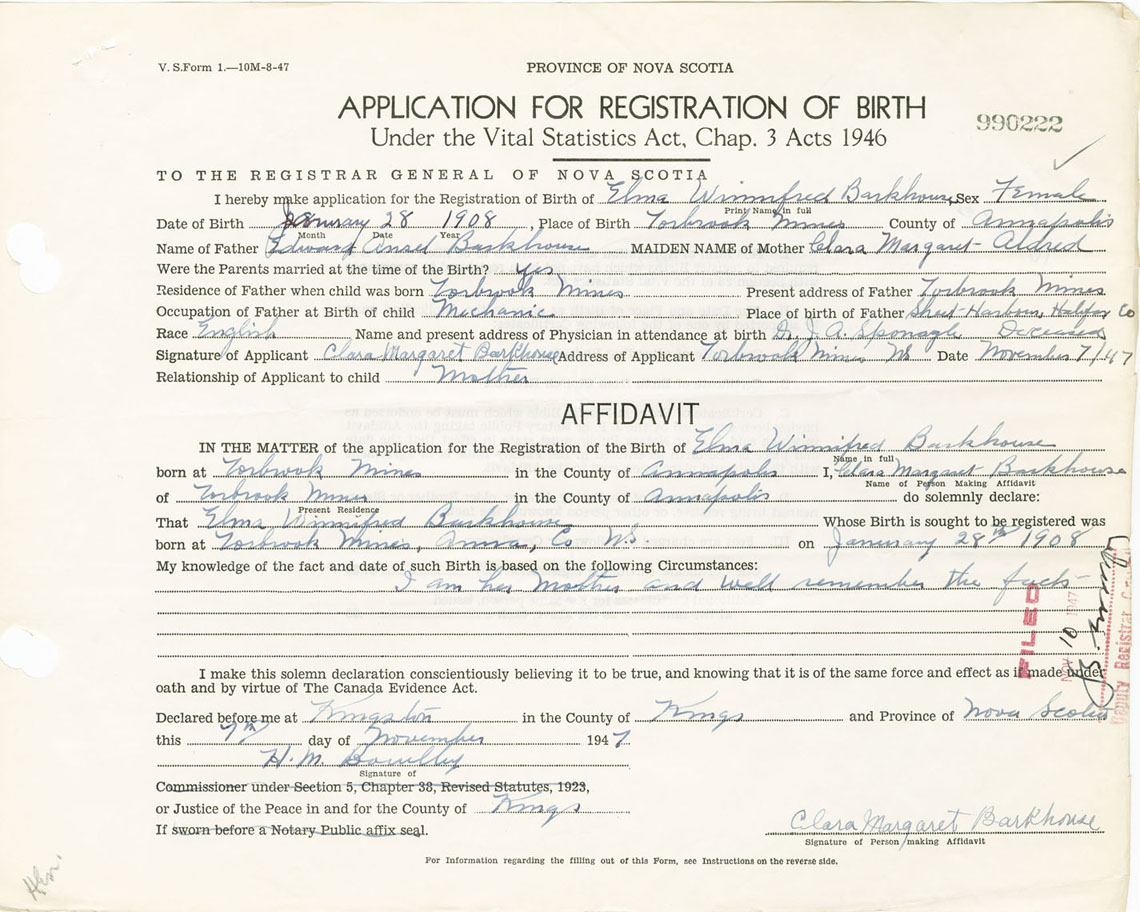 V. S.Form 1.—10M-8-47
PROVINCE OF NOVA SCOTIA
APPLICATION FOR REGISTRATION OF BIRTH
990222
Under the Vital Statistics Act, Chap. 3 Acts 1946
TO THE REGISTRAR GENERAL OF NOVA SCOTIA
I hereby make application for the Registration of Birth of Elma Winnifred Barkhouse Sex Female
Print Name in full
Date of Birth January 28 1908, Place of Birth Torbrook Mines County of Annapolis
Month Date Year
Name of Father Edward Ansel Barkhouse MAIDEN NAME of Mother Clara Margaret Aldred
Were the Parents married at the time of the Birth? yes
Residence of Father when child was born Torbrook Mines Present address of Father Torbrook Mines
Occupation of Father at Birth of child Mechanic Place of birth of Father Sheet Harbour, Halifax Co
Race English Name and present address of Physician in attendance at birth Dr. J. A. Sponagle Deceased
Signature of Applicant Clara Margaret Barkhouse Address of Applicant Torbrook Mines NS Date November 7/47
Relationship of Applicant to child Mother
AFFIDAVIT
IN THE MATTER of the application for the Registration of the Birth of Elma Winnifred Barkhouse
Name in full
born at Torbrook Mines in the County of Annapolis I, Clara Margaret Barkhouse
Name of Person Making Affidavit
of Torbrook Mines in the County of Annapolis do solemnly declare:
Present Residence
That Elma Winnifred Barkhouse Whose Birth is sought to be registered was
born at Torbrook Mines, Anna, Co N.S. on January 28th 1908
My knowledge of the fact and date of such Birth is based on the following Circumstances:
I am her Mother and well remember the facts
FILED
NOV 10 1947
Deputy Registrar
I make this solemn declaration conscientiously believing it to be true, and knowing that it is of the same force and effect as if made under
oath and by virtue of The Canada Evidence Act.
Declared before me at Kingston in the County of Kings and Province of Nova Scotia
this 7th day of November 1947
H. M.
Signature of
Commissioner under Section 5, Chapter 38, Revised Statutes, 1923,
or Justice of the Peace in and for the County of Kings
If sworn before a Notary Public affix seal.
Clara Margaret Barkhouse
Signature of Person making Affidavit
For Information regarding the filling out of this Form, see Instructions on the reverse side.